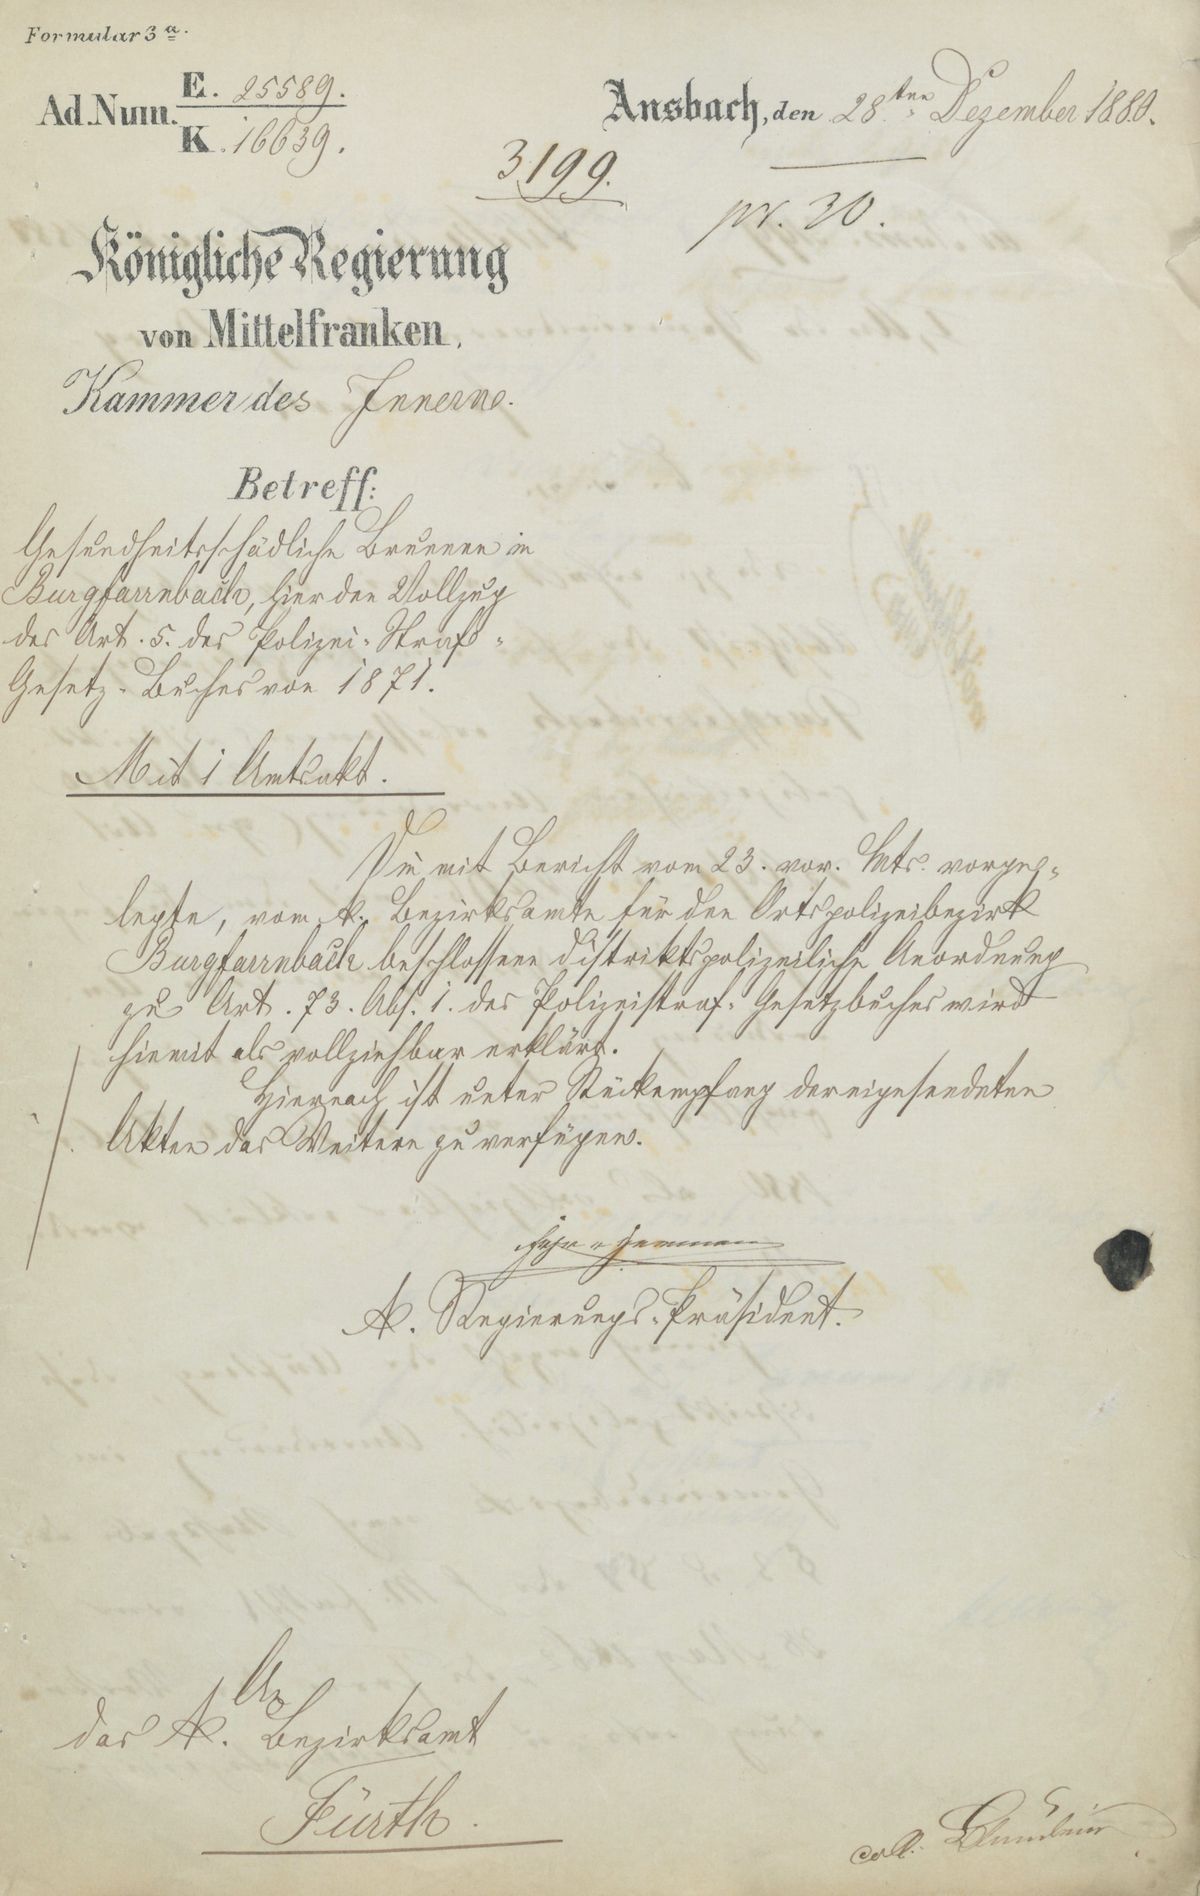 Formular 3a.
Ad. Num. E. 25589.
K. 16639.
Ansbach, den 28.ten Dezember 1880.
3199.
pr. 30.
Königliche Regierung
von Mittelfranken,
Kammer des Innern.
Betreff:
Gesundheitsschädliche Brunnen in
Burgfarrnbach, hier den Vollzug
des Art. 5. des Polizei-Straf-
Gesetz-Buches von 1871.
Mit 1 Amtsakt.
Die mit Bericht vom 23. vor. Mts. vorge-
legte, vom k. Bezirksamte für den Ortspolizeibezirk
Burgfarrnbach beschlossene distriktspolizeiliche Anordnung
zu Art. 73. Abs. 1. des Polizeistraf-Gesetzbuches wird
hiemit als vollziehbar erklärt.
Hiernach ist unter Rückempfang der eingesendeten
Akten das Weitere zu verfügen.
K. Regierungs-Präsident.
An
das K. Bezirksamt
Fürth.
coll.